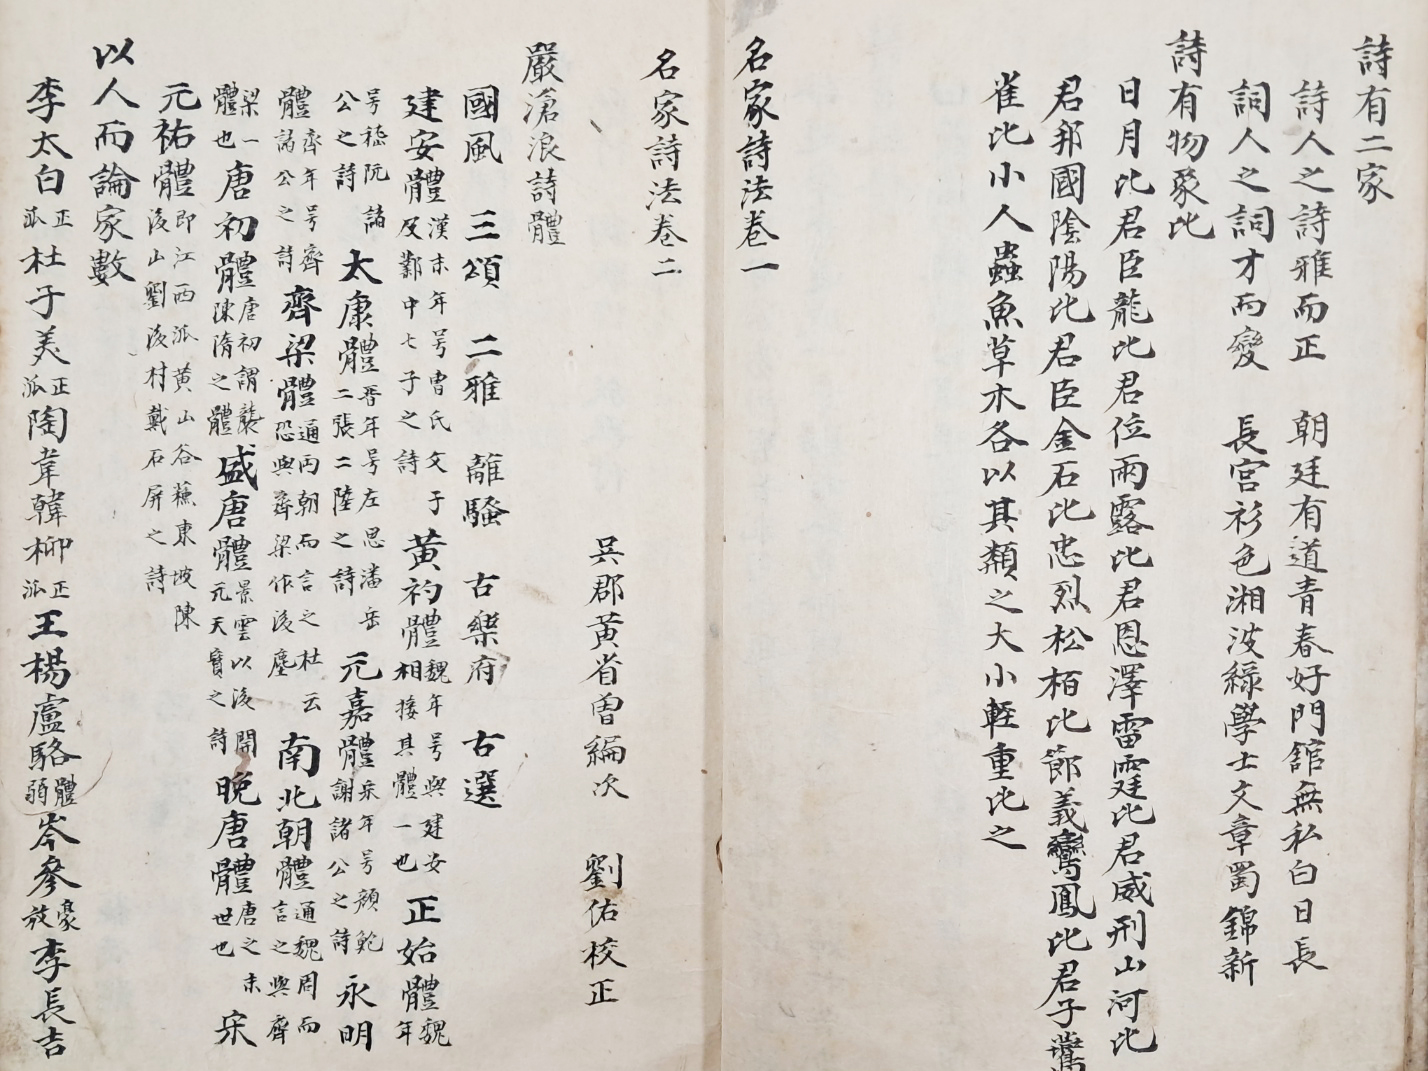 詩有二家
詩人之詩雅而正 朝廷有道青春好門館無私白日長
詞人之詞才而變 長宮衫色湘波綠學士文章蜀錦新
詩有物象比
日月比君臣龍比君位雨露比君恩澤雷霆比君威刑山河比
君邦國陰陽比君臣金石比忠烈松栢比節義鸞鳳比君子鷰
雀比小人蟲魚草木各以其類之大小輕重比之
名家詩法卷一
名家詩法卷二
吳郡黃省曾編次 劉佑校正
嚴滄浪詩體
國風 三頌 二雅 離騷 古樂府 古選
建安體漢末年号曹氏父子及鄴中七子之詩 黃初體魏年号與建安相接其體一也 正始體魏年
号嵇阮諸公之詩 太康體晋年号左思潘岳二張二陸之詩 元嘉體宋年号顏鮑謝諸公之詩 永明
體齊年号齊諸公之詩 齊梁體通兩朝而言之杜云恐與齊梁作後塵 南北朝體通魏周而言之與齊
梁一體也 唐初體唐初謂襲陳隋之體 盛唐體景雲以後開元天寶之詩 晚唐體唐之末世也 宋
元祐體即江西派黄山谷蘇東坡陳後山劉後村戴石屏之詩
以人而論家數
李太白正派 杜子美正派 陶韋韓柳正派 王楊盧駱體弱 岑參豪放 李長吉